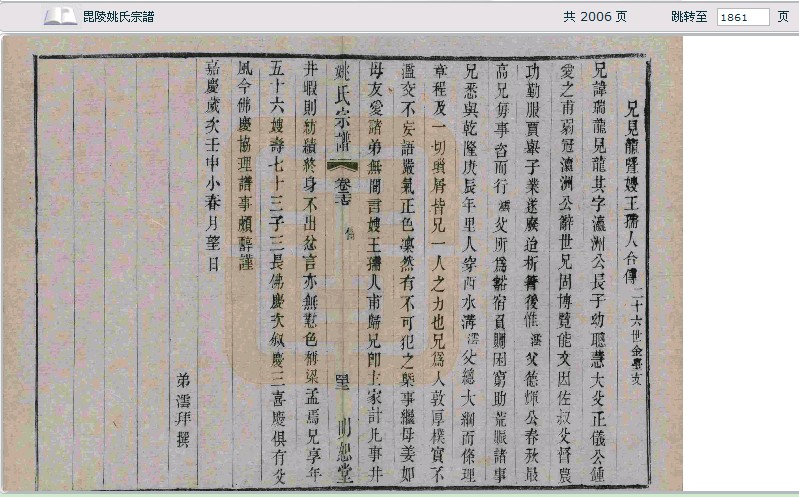 毘陵姚氏宗譜
共 2006 页
跳转至 1861 页
兄見龍暨嫂王孺人合傳 二十六世金臺支
兄諱瑞龍見龍其字瀛洲公長子幼聰慧大父正儀公鍾
愛之甫弱冠瀛洲公辭世兄固博覽能文因佐叔父督農
功勤服賈舉子業遂廢迨析箸後惟濡父德煇公春秋最
高兄每事咨而行濡父所為豁宿負賙困窮助荒賑諸事
兄悉與乾隆庚辰年里人穿西水溝濡父總大綱而條理
章程及一切瑣屑皆兄一人之力也兄為人敦厚樸實不
濫交不妄語嚴氣正色凜然有不可犯之槩事繼母姜如
母友愛諸弟無間言嫂王孺人甫歸兄即主家計凡事井
姚氏宗譜 卷三 堂 明恕堂
井暇則紡績終身不出忿言亦無懟色稱梁孟焉兄享年
五十六嫂壽七十三子三長佛慶次叙慶三喜慶俱有父
風今佛慶協理譜事頗辭謹
嘉慶歲次壬申小春月望日
弟濡拜撰